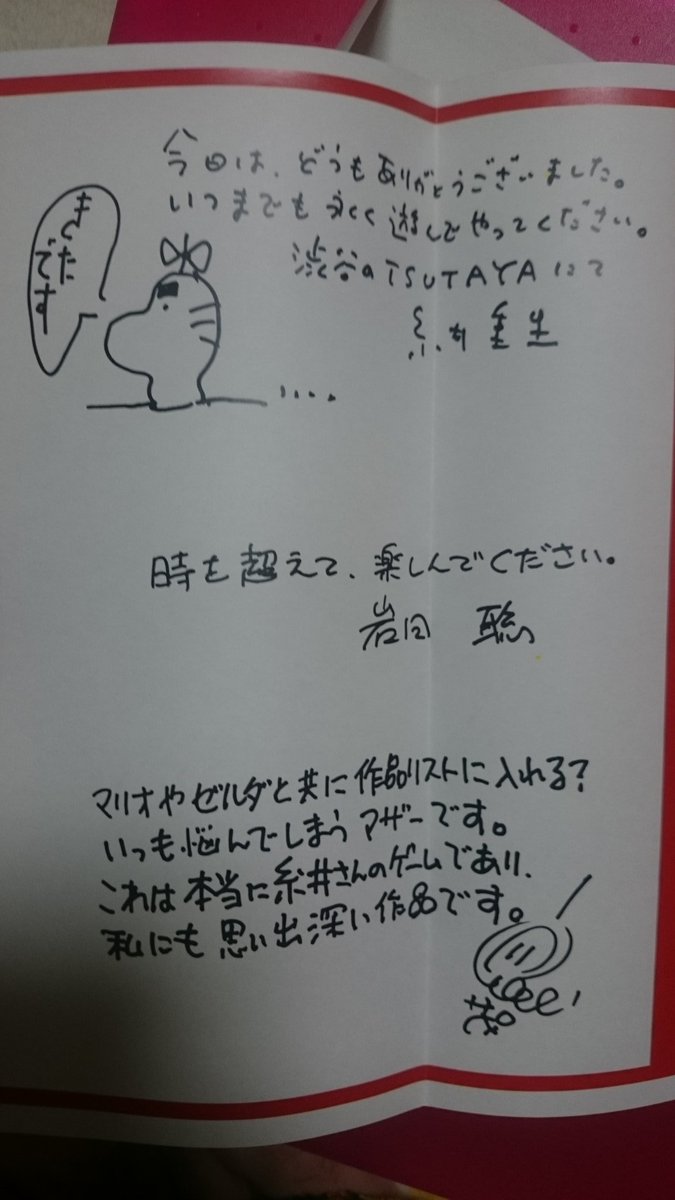 今回は、どうもありがとうございました。
いつまでも永く遊んでやってください。
渋谷のTSUTAYAにて
糸井重里
まくただです
時を超えて、楽しんでください。
岩田 聡
マリオやゼルダと共に作品リストに入れる?
いつも悩んでしまうマザーです。
これは本当に糸井さんのゲームであり、
私にも思い出深い作品です。